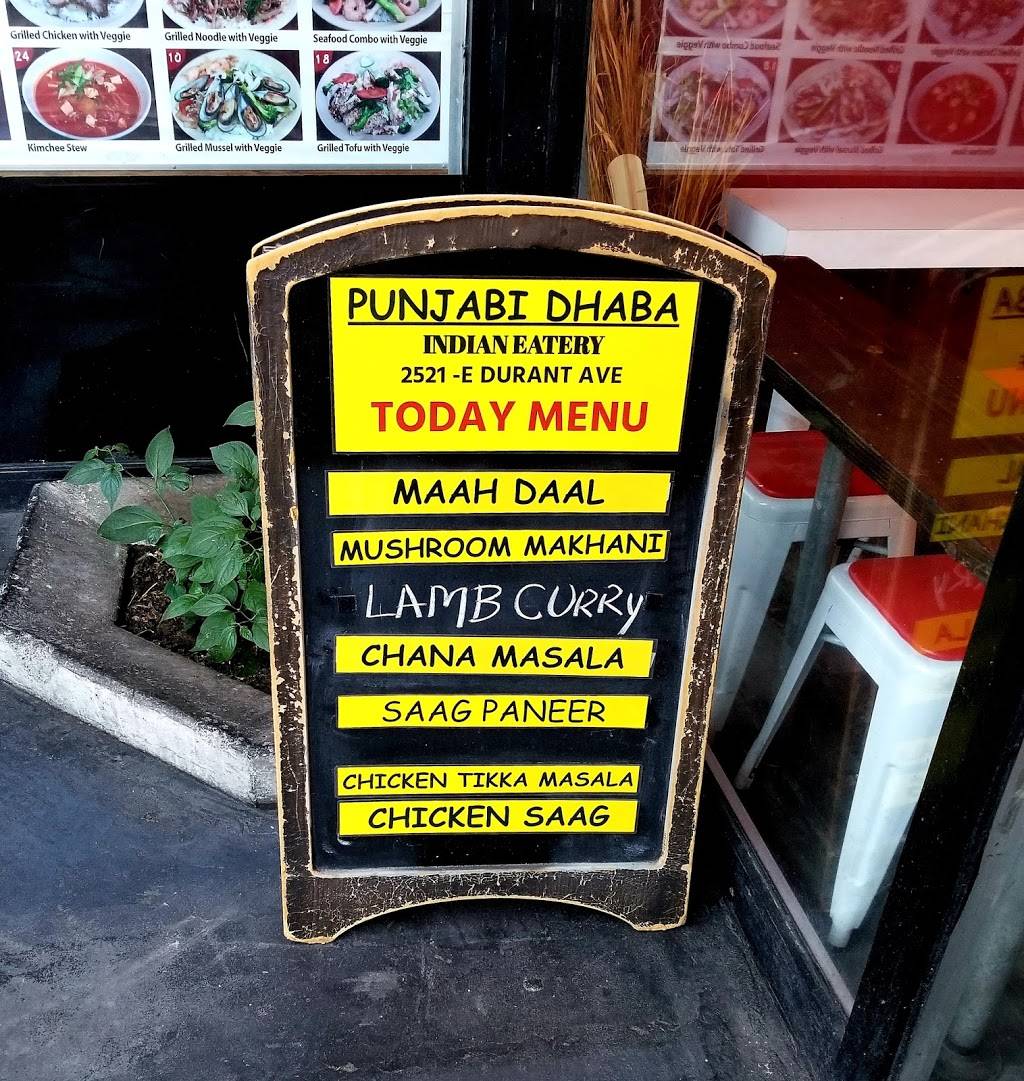 Grilled Chicken with Veggie
Grilled Noodle with Veggie
Seafood Combo with Veggie
24
10
18
Kimchee Stew
Grilled Mussel with Veggie
Grilled Tofu with Veggie
PUNJABI DHABA
INDIAN EATERY
2521 -E DURANT AVE
TODAY MENU
MAAH DAAL
MUSHROOM MAKHANI
LAMB CURRy
CHANA MASALA
SAAG PANEER
CHICKEN TIKKA MASALA
CHICKEN SAAG